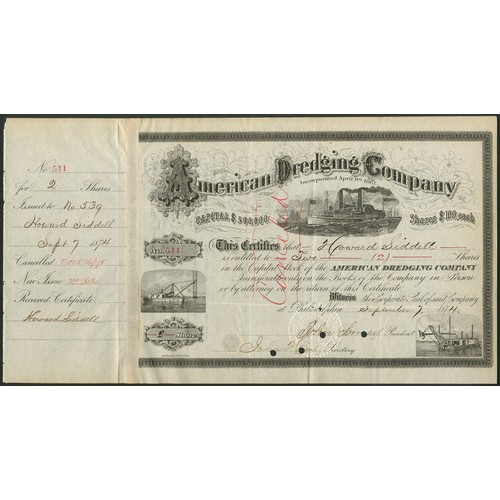 No. 511
for 2 Shares
Issued to No. 539
Howard Siddell
Sept 7 1874
Cancelled
New Issue
Received Certificate
Howard Siddell
American Dredging Company
Incorporated April 9th 1867
CAPITAL $ 500,000
Shares $ 100 each
Cancelled
No. 511
This Certifies that Howard Siddell
is entitled to Two (2) Shares
in the Capital Stock of the AMERICAN DREDGING COMPANY
Transferable only on the Books of the Company in Person
or by Attorney on the return of this Certificate
Witness the Corporate Seal of said Company
at Philadelphia September 7 1874.
President
2 Shares
Secretary